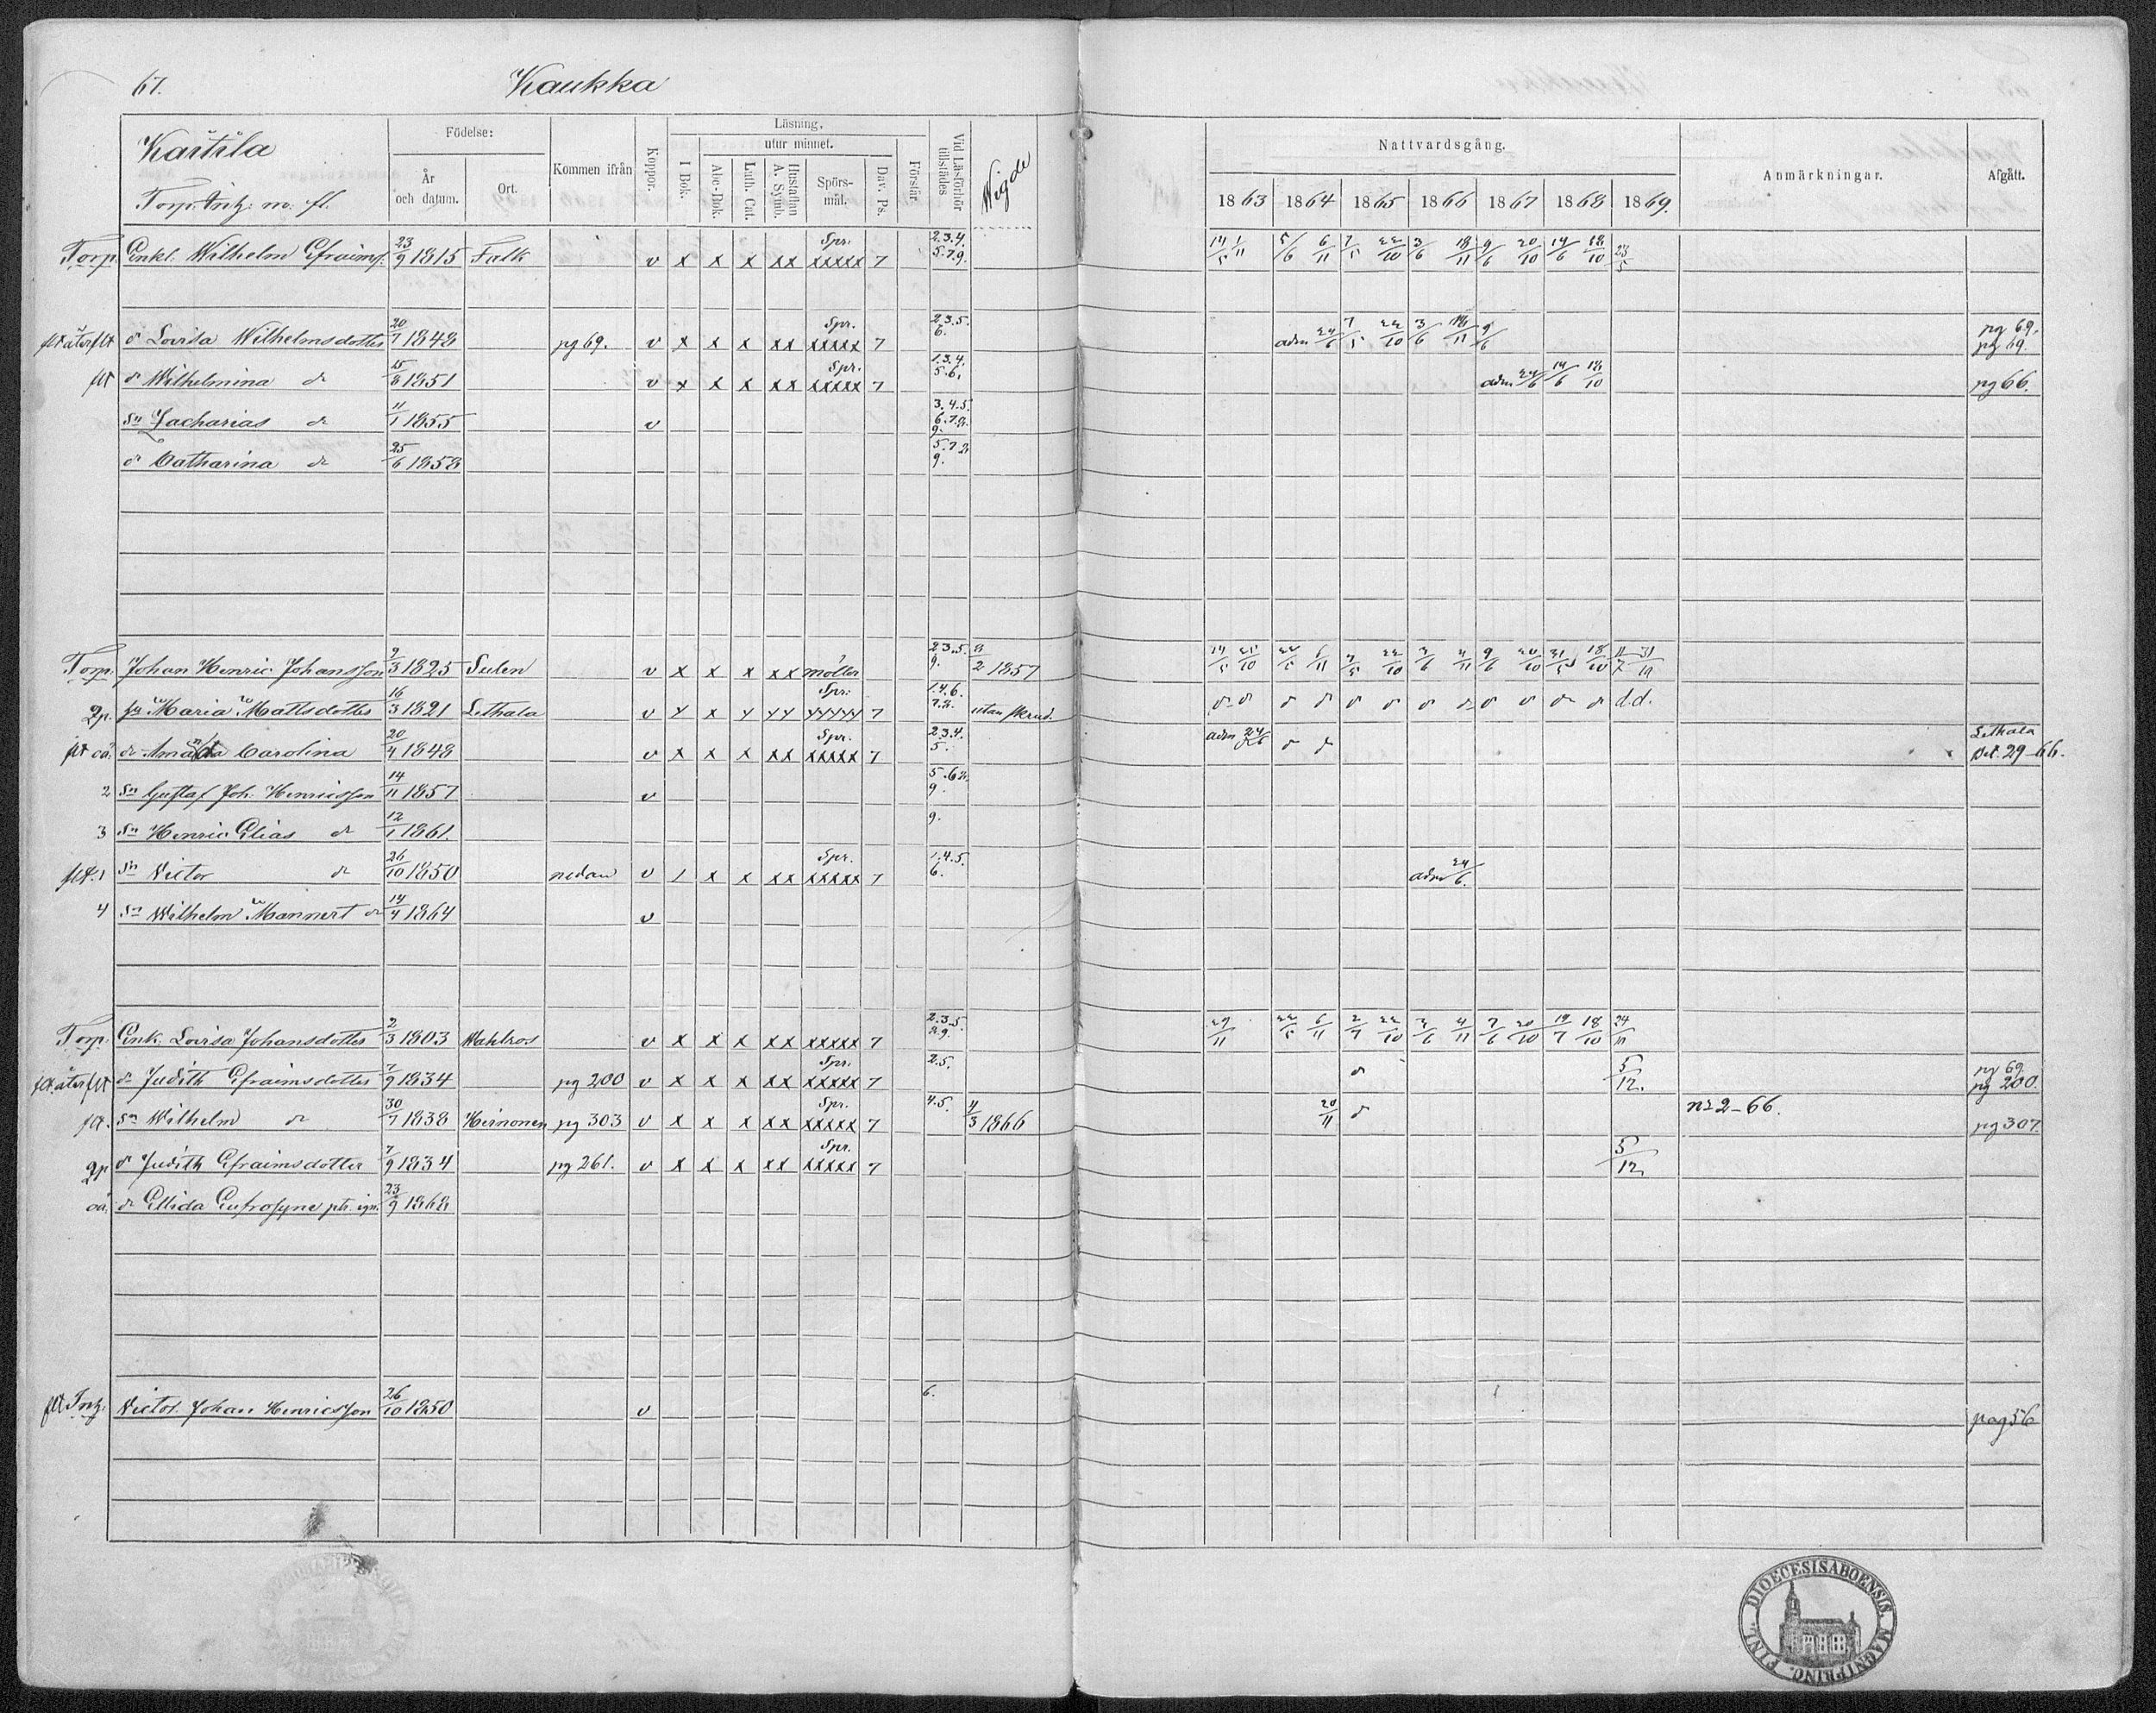 67. Kaukka
Kärtilä
Torp. Intg: m. fl.
Födelse:
År och datum.
Ort.
Kommen ifrån
Koppor.
Läsning.
utur minnet.
I Bok.
Abc-Bok.
Luth. Cat.
Hustaflan A. Symb.
Spörs-mål.
Dav. Ps.
Förstår.
Vid Läsförhör tillstädes
Wigde
Nattvardsgång.
1863 1864 1865 1866 1867 1868 1869.
Anmärkningar.
Afgått.
Torp. Enkl. Wilhelm Efraimss. 23/9 1815 Falk v x x x xx Spr. xxxxx 7 2.3.4. 5.7.9. 14/5 1/11 5/6 6/11 7/5 22/10 3/6 18/11 9/6 20/10 14/6 18/10 23/5
flt åter flt dr Lovisa Wilhelmsdotter 20/7 1848 pg 69. v x x x xx Spr. xxxxx 7 2.3.5. 6. adm 24/6 7/5 22/10 3/6 18/11 9/6 pg 69. pg 69.
flt dr Wilhelmina dr 15/8 1851 v x x x xx Spr. xxxxx 7 1.3.4. 5.6. adm 24/6 14/6 18/10 pg 66.
Sn Zacharias dr 11/1 1855 v 3.4.5. 6.7.8. 9.
dr Catharina dr 25/6 1858 5.7.8. 9.
Torp. Johan Henric Johansson 2/3 1825 Sulen v x x x xx möller 2.3.5. 9. 8/2 1857
2p. hu Maria Mattsdotter 16/3 1821 Lethala v x x x xx Spr. xxxxx 7 1.4.6. 7.8. utan skrud. d.d.
flt oä. dr Amanda Carolina 20/4 1848 v x x x xx Spr. xxxxx 7 2.3.4. 5. adm 24/6 Lethala Bet. 29-66.
2 Sn Gustaf Joh. Henricsson 14/11 1857 v 5.6.8. 9.
3 Sn Henric Elias dr 12/1 1861. 9.
flt. 1 Sn Victor dr 26/10 1850 nedan v x x x xx Spr. xxxxx 7 1.4.5. 6. adm 24/6.
4 Sn Wilhelm Mannert dr 14/4 1864 v
Torp. Enk. Lovisa Johansdotter 2/3 1803 Wahlros v x x x xx xxxxx 7 2.3.5. 8.9. 29/11 22/5 6/11 2/7 22/10 3/6 4/11 7/6 20/10 19/7 18/10 24/11
flt åter flt dr Judith Efraimsdotter 7/9 1834 pg 200 v x x x xx Spr. xxxxx 7 2.5. 5/12. pg 69. pg 200.
flt. Sn Wilhelm dr 30/7 1838 Heinonen pg 303 v x x x xx Spr. xxxxx 7 4.5. 4/3 1866 20/11 nr 2-66. pg 307.
2p dr Judith Efraimsdotter 7/9 1834 pg 261. v x x x xx Spr. xxxxx 7 5/12.
oä. dr Ellida Eufrosyne ptr. ign. 23/9 1868
flt Intg. Victor Johan Henricsson 26/10 1850 v 6. pag 56
DIOECESIS ABOENSIS. MAGNI PRINC. FINL.